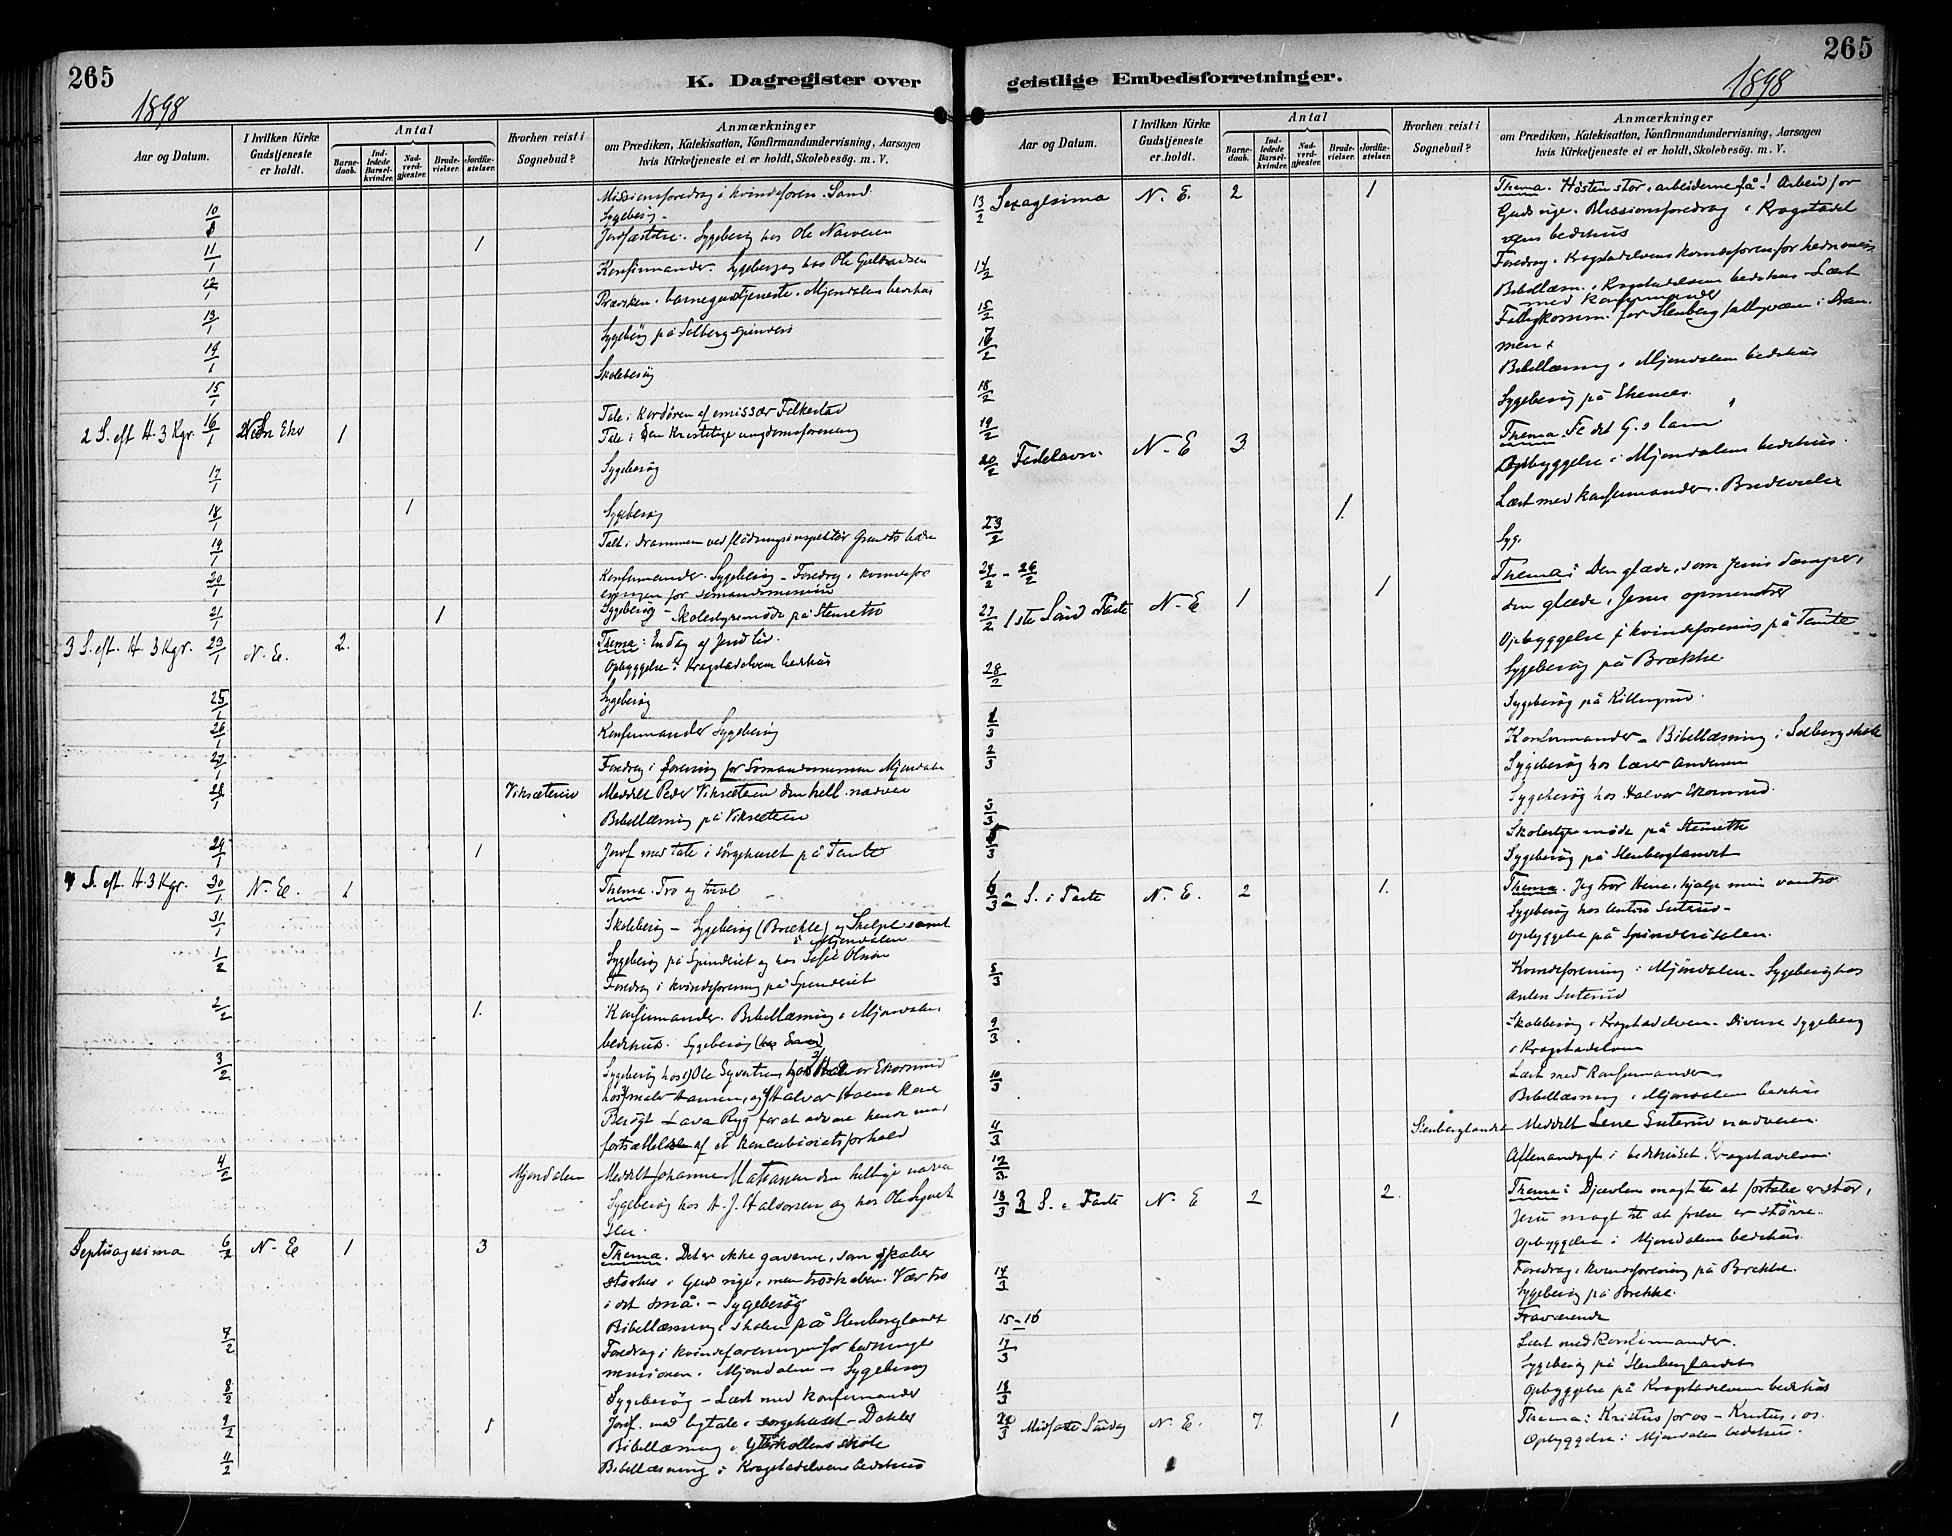 265
1898
K. Dagregister over
Aar og Datum.
I hvilken Kirke Gudstjeneste er holdt.
Antal
Barnedaab.
Indledede Barselkvinder.
Nadverdgjester.
Brudevielser.
Jordfæstelser.
Hvorhen reist i Sognebud?
Anmærkninger
om Prædiken, Katekisation, Konfirmandundervisning, Aarsagen
hvis Kirketjeneste ei er holdt, Skolebesøg. m. V.
Missionsforedrag i kvindeforen. Sand
10/1 Sygebesøg.
1 Jordfæstelse. Sygebesøg hos Ole Narveren
11/1 Konfirmander. Sygebesøg hos Ole
12/1 Prædiken. barnegudstjeneste. Mjøndalens bedehus
13/1 Sygebesøg på Solberg spinderi
14/1 Skolebesøg
15/1
Tale i af emissær Falkestad
2 S. eft H. 3 Kgr. 16/1 1 Tale i Den Kristelige ungdomsforening
17/1 Sygebesøg
18/1 1 Sygebesøg
19/1 Tale i Drammen ved
20/1 Konfirmander. Sygebesøg - Foredrag i kvindefor
eningen for sømandsmission
21/1 1 Sygebesøg - Skolestyremøde på Stenseth
3 S. eft. H. 3 Kgr. 23/1 N. E. 2. Thema: En dag af Jesu liv.
Opbyggelse i Krogstadelvens bedehus
25/1 Sygebesøg
26/1 Konfirmander Sygebesøg
27/1 Foredrag i forening for Sømandsmission Mjøndalen
28/1 Viksæteren Meddelt Peder Viksæteren den hell. nadver
Bibellæsning på Viksæteren
29/1 1 Jordf med tale i sørgehuset på Tante
4 S. eft. H. 3 Kgr. 30/1 N. E. 1 Thema. Tro og tvivl
31/1 Skolebesøg - Sygebesøg (Brække) og samt
i Mjøndalen
1/2 Sygebesøg på Spinderiet og hos Sofie Olsen
Foredrag i kvindeforening på Spinderiet
2/2 1. Konfirmander. Bibellæsning i Mjøndalens
bedehus. Sygebesøg
3/2 Sygebesøg hos 1) Ole Syvertsen Halvor Ekornrud
hos maler Hansen, og Halvor
Besøgt Lava Ryg for at advare hende mod
fortsættelse af et konkubinatsforhold
4/2 Mjøndalen Meddelt Johanne den hellige nadver
Sygebesøg hos H. J. Halvorsen og hos Ole Syvert
sen.
Septuagesima 6/2 N. E 1 3 Thema. Det er ikke gaverne, som skaber
storhed i Guds rige, men troskaben. Vær tro
i det små. - Sygebesøg
Bibellæsning i skolen på Stenberglandet
7/2 Foredrag i kvindeforeningen for hedninge
missionen. Mjøndalen - Sygebesøg
8/2 Sygebesøg - Læst med konfirmander
9/2 1 Jordf. med ligtale i sørgehuset - Dahler
Bibellæsning i Ytterkollens skole
11/2 Bibellæsning i Krogstadelvens bedehus
265
1898
geistlige Embedsforretninger.
Aar og Datum.
I hvilken Kirke Gudstjeneste er holdt.
Antal
Barnedaab.
Indledede Barselkvinder.
Nadverdgjester.
Brudevielser.
Jordfæstelser.
Hvorhen reist i Sognebud?
Anmærkninger
om Prædiken, Katekisation, Konfirmandundervisning, Aarsagen
hvis Kirketjeneste ei er holdt, Skolebesøg. m. V.
13/2 Sexagesima N. E. 2 1 Thema. Høsten stor, arbeiderne få! Arbeid for
Guds rige. Missionsforedrag i Krogstadel
vens bedehus
14/2 Foredrag i Krogstadelvens kvindeforen for hedn.miss.
Bibellæsn. i Krogstadelvens bedehus - Læst
med konfirmander
15/2 Fattigkomm. for Stenberg fattigvæsen i Dram
men
16/2 Bibellæsning i Mjøndalens bedehus
18/2 Sygebesøg på Ekenes.
19/2
20/2 Fastelavn. N. E 3. Thema. Se det G. s lam
Opbyggelse i Mjøndalens bedehus.
23/2 1. Læst med konfirmander. Brudevielse
24/2 - 26/2 Syg.
27/2 1ste Sønd Faste N. E 1 1 Thema: Den glæde, som Jesus dæmper,
den glæde, Jesus opmuntrer
Opbyggelse i kvindeforening på Tante
28/2 Sygebesøg på Brække
1/3 Sygebesøg på Killingrud.
2/3 Konfirmander - Bibellæsning i Solberg skole
Sygebesøg hos lærer Andersen
Sygebesøg hos Halvor Ekornrud.
5/3 Skolestyremøde på Stenseth
Sygebesøg på Stenberglandet
6/3 2 S. i Faste N. E. 2 1. Thema. Jeg tror Herre, hjælp min vantro
Sygebesøg hos Anton Suterud -
Opbyggelse på Spinderisalen.
8/3 Kvindeforening i Mjøndalen - Sygebesøg hos
Anton Suterud
9/3 Skolebesøg i Krogstadelven - Diverse sygebesøg
i Krogstadelven
10/3 Læst med konfirmander
Bibellæsning i Mjøndalens bedehus
4/3 Stenberglandet Meddelt Lene Suterud nadveren.
12/3 Aftenandagt i bedehuset Krogstadelven
13/3 3 S. i Faste N. E 2 2. Thema: Djævlens magt til at fortabe er stor,
Jesu magt til at frelse er større.
Opbyggelse i Mjøndalens bedehus.
14/3 Foredrag i kvindeforening på Brekke.
Sygebesøg på Brekke.
15-16 Fraværende
17/3 Læst med Konfirmander.
Sygebesøg på Stenberglandet
18/3 Opbyggelse på Krogstadelvens bedehus
20/3 Midfaste Søndag N. E. 7. 1 Thema: Kristus for os - Kristus i os.
Opbyggelse i Mjøndalens bedehus.